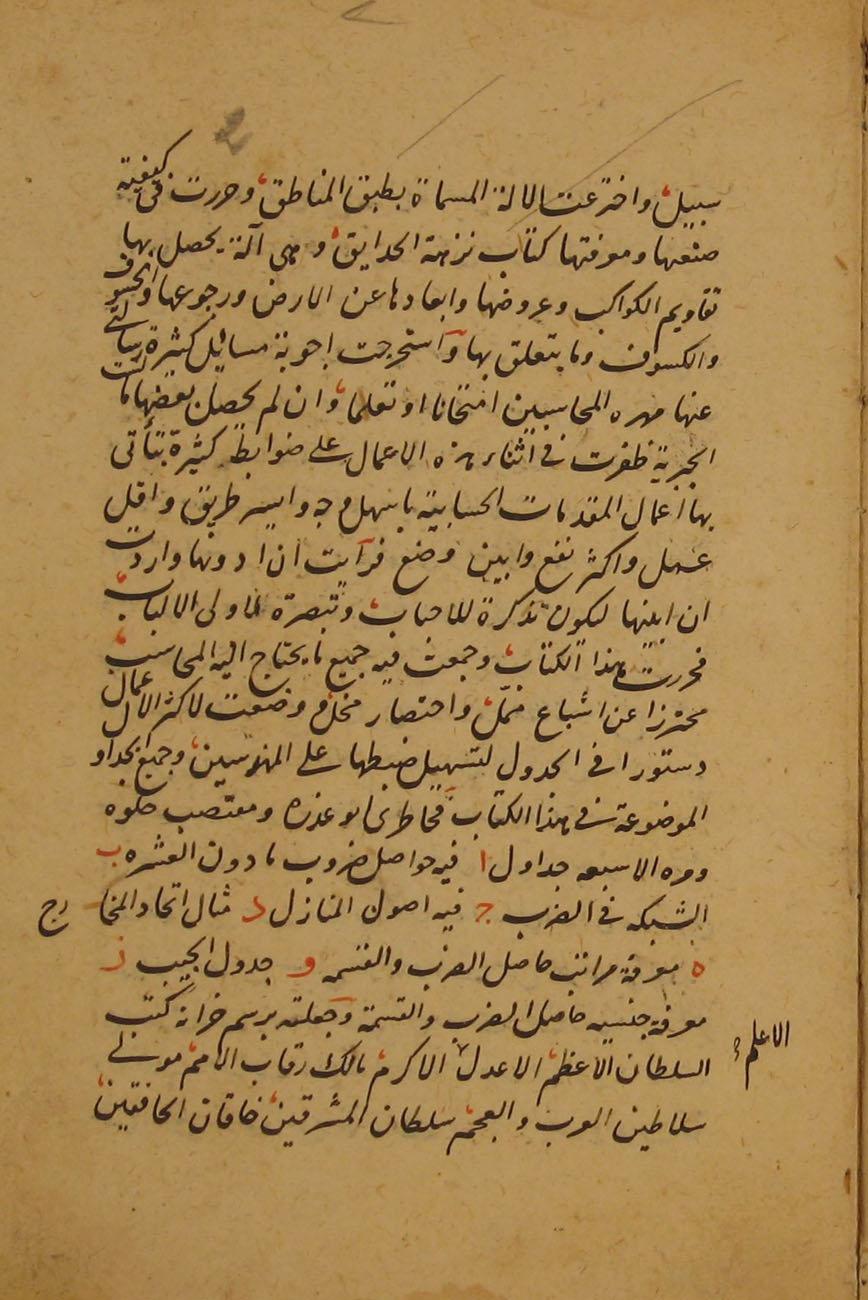 2
سبيل واخترعت الالة المسماة بطبق المناطق وحررت فى كيفية
صنعها ومعرفتها كتاب نزهة الحدايق وهى آلة يحصل بها
تقاويم الكواكب وعروضها وابعادها عن الارض ورجوعها والخسوف
والكسوف وما يتعلق بها واستخرجت اجوبة مسايل كثيرة سالتى
عنها مهره المحاسبين امتحانا او تعلما وان لم يحصل بعضها بالست
الجبرية ظفرت فى اثناء هذه الاعمال على ضوابط كثيرة يتأتى
بها اعمال المقدمات الحسابية باسهل وجه وايسر طريق واقل
عمل واكثر نفع وابين وضع فرأيت ان ادونها واردت
ان ابينها ليكون تذكرة للاحباب وتبصرة لاولى الالباب
فحررت هذا الكتاب وجمعت فيه جميع ما يحتاج اليه المحاسب
محترزا عن اشباع ممل واختصار مخل وضعت لاكثر الاعمال
دستورا فى الجدول لتسهيل ضبطها على المهندسين وجميع الجداو
الموضوعة فى هذا الكتاب فخاطرى ابو عذره ومقتصب حلوه
وهره الا سبعه جداول ا فيه حواصل ضروب ما دون العشره ب
الشبكه فى الضرب ج فيه اصول المنازل د مثال اتحاد المخا رج
ه معرفة مراتب حاصل الضرب والقسمه و جدول الجيب ز
معرفة جنسيه حاصل الضرب والقسمة وجعلته برسم خزانه كتب
السلطان الاعظم الاعدل الاكرم مالك رقاب الامم مولى
الاعلم
سلاطين العرب والعجم سلطان المشرقين خاقان الخافقين